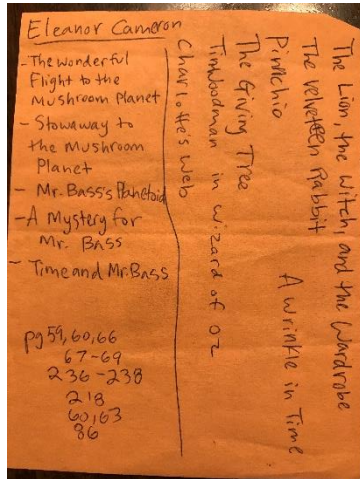 Eleanor Cameron
- The Wonderful
Flight to the
Mushroom Planet
- Stowaway to
the Mushroom
Planet
- Mr. Bass's Planetoid
- A Mystery for
Mr. Bass
- Time and Mr. Bass
pg 59, 60, 66
67-69
236-238
218
60, 63
86
The Lion, the Witch, and the Wardrobe
The Velveteen Rabbit
Pinnochio
A Wrinkle in Time
The Giving Tree
Tin Woodman in Wizard of Oz
Charlotte's Web